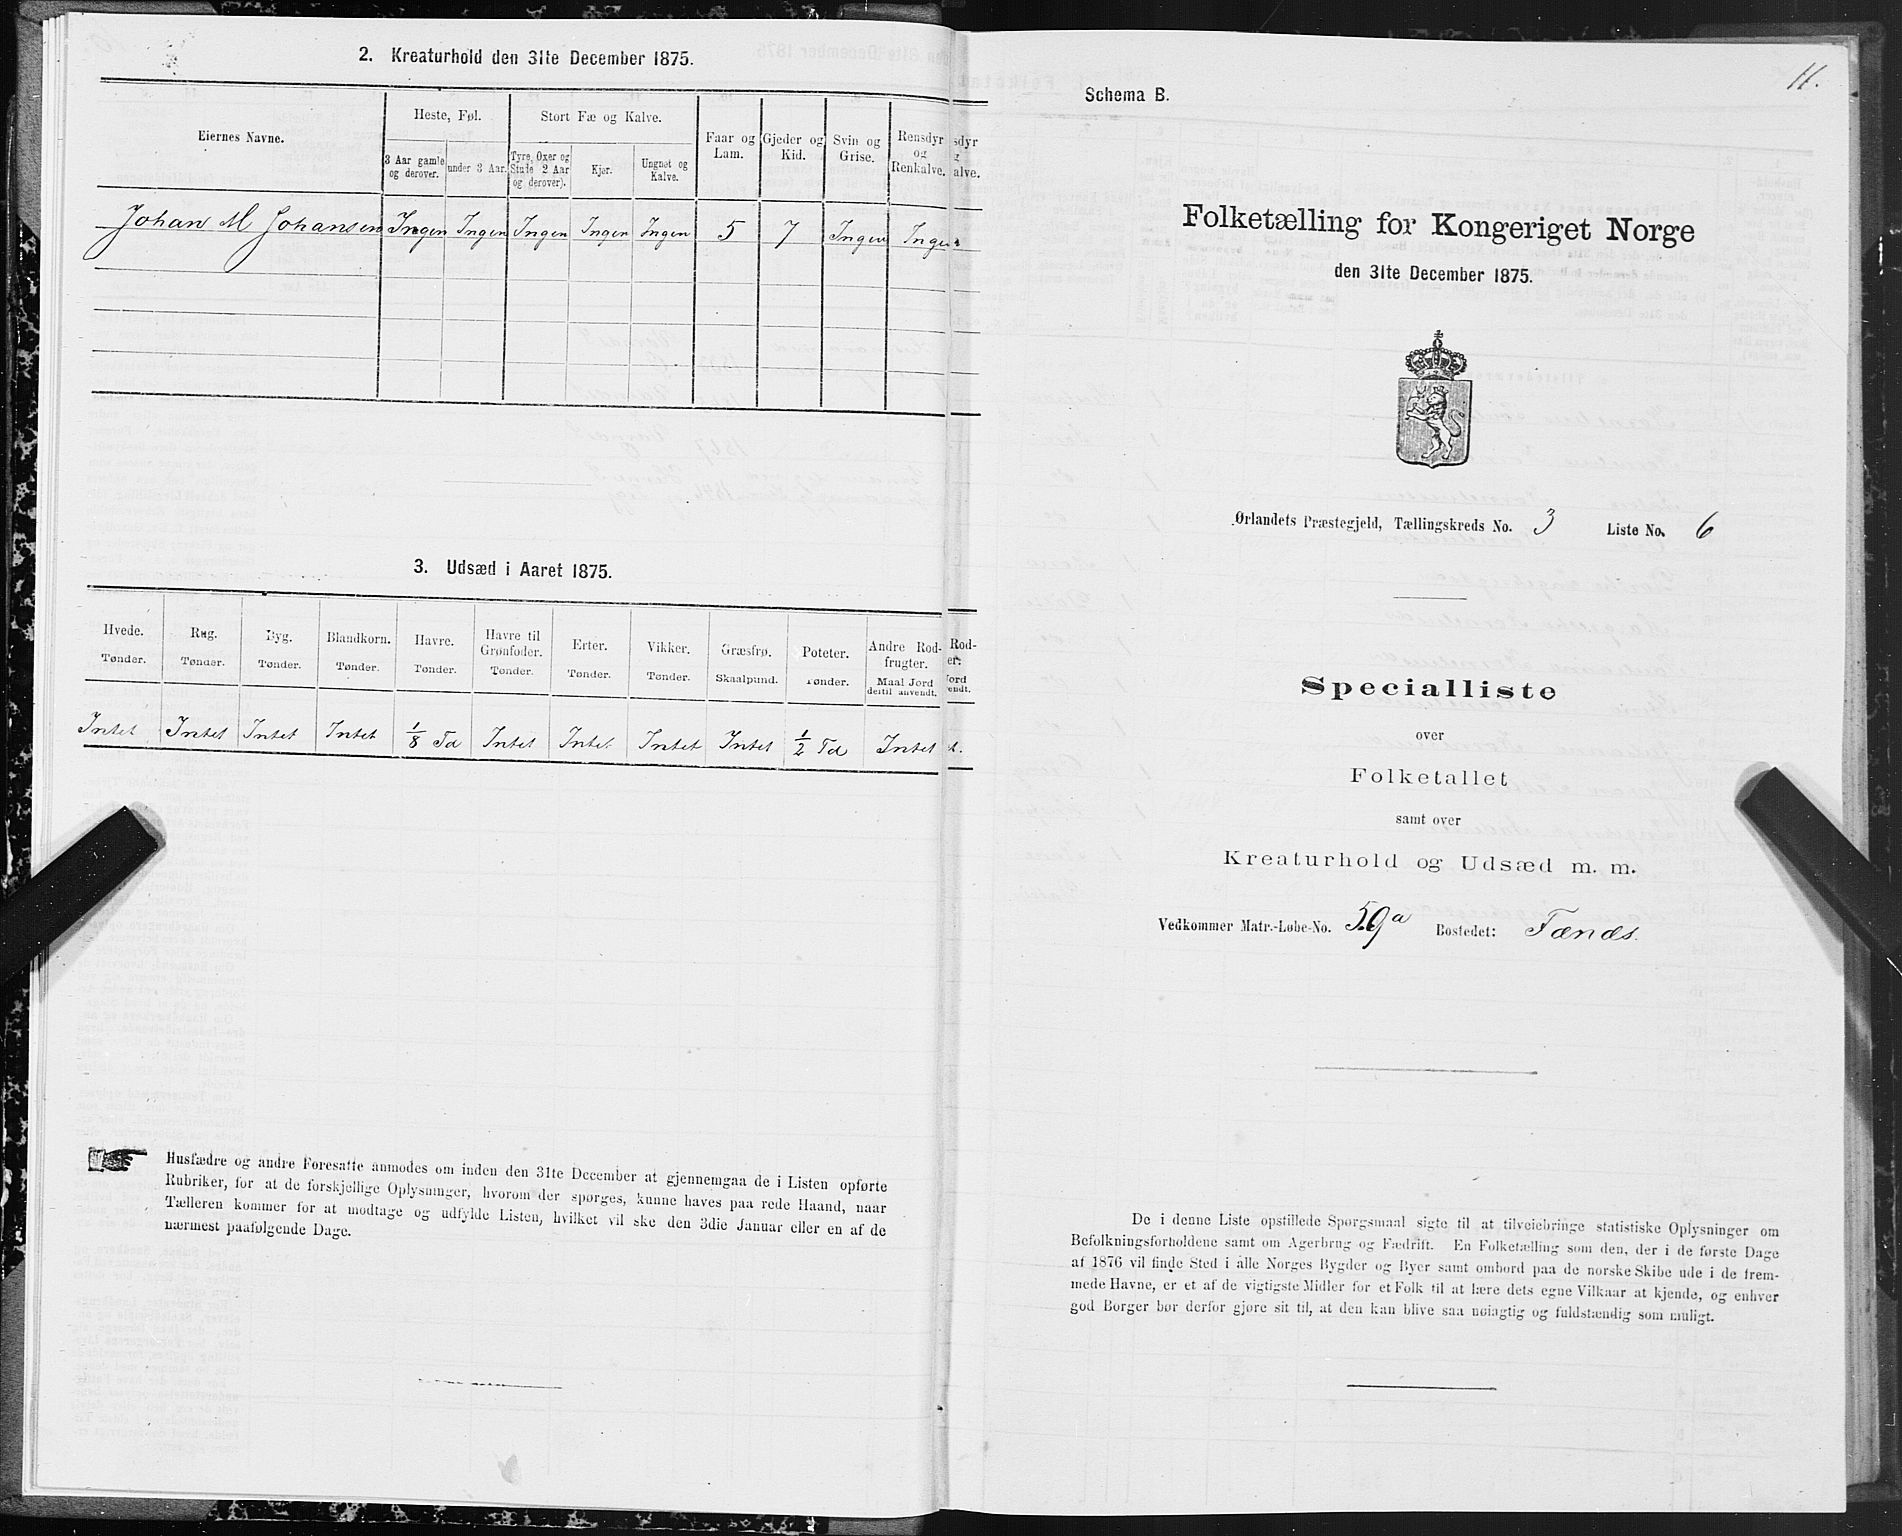 2. Kreaturhold den 31te December 1875.
Eiernes Navne.
Heste, Føl.
Stort Fæ og Kalve.
Faar og Lam.
Gjeder og Kid.
Svin og Grise.
Rensdyr og Renkalve.
3 Aar gamle og derover.
under 3 Aar.
Tyre, Oxer og Stude 2 Aar og derover).
Kjør.
Ungnøt og Kalve.
Johan M Johansen Ingen Ingen Ingen Ingen Ingen 5 7 Ingen Ingen
3. Udsæd i Aaret 1875.
Hvede. Rug. Byg. Blandkorn. Havre. Havre til Grønfoder. Erter. Vikker. Græsfrø. Poteter. Andre Rodfrugter.
Tønder. Tønder. Tønder. Tønder. Tønder. Tønder. Tønder. Tønder. Skaalpund. Tønder. Maal Jord dertil anvendt.
Intet Intet Intet Intet 1/8 Td Intet Intet Intet Intet 1/2 Td Intet
Husfædre og andre Foresatte anmodes om inden den 31te December at gjennemgaa de i Listen opførte
Rubriker, for at de forskjellige Oplysninger, hvorom der spørges, kunne haves paa rede Haand, naar
Tælleren kommer for at modtage og udfylde Listen, hvilket vil ske den 3die Januar eller en af de
nærmest paafølgende Dage.
11.
Schema B.
Folketælling for Kongeriget Norge
den 31te December 1875.
Ørlandets Præstegjeld, Tællingskreds No. 3 Liste No. 6
Specialliste
over
Folketallet
samt over
Kreaturhold og Udsæd m. m.
Vedkommer Matr.-Løbe-No. 59a Bostedet: Fænæs.
De i denne Liste opstillede Spørgsmaal sigte til at tilveiebringe statistiske Oplysninger om
Befolkningsforholdene samt om Agerbrug og Fædrift. En Folketælling som den, der i de første Dage
af 1876 vil finde Sted i alle Norges Bygder og Byer samt ombord paa de norske Skibe ude i de frem-
mede Havne, er et af de vigtigste Midler for et Folk til at lære dets egne Vilkaar at kjende, og enhver
god Borger bør derfor gjøre sit til, at den kan blive saa nøiagtig og fuldstændig som muligt.